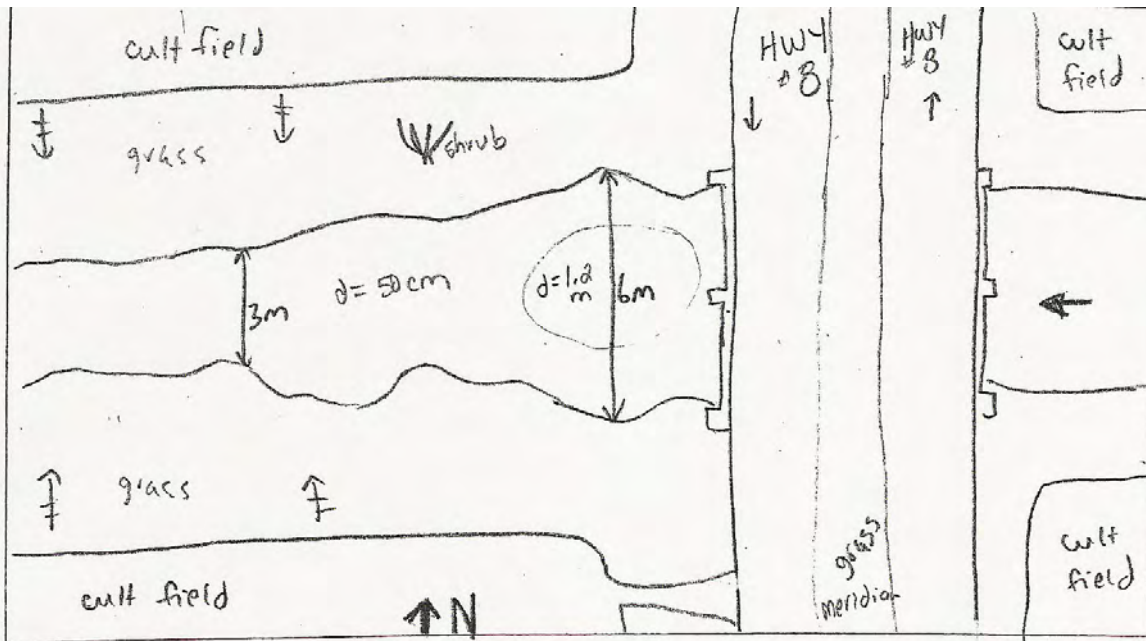 cult field
HWY
#8
HWY
#8
cult
field
grass
shrub
d= 50cm
d=1.2
m
6m
3m
grass
grass
meridian
cult field
N
cult
field